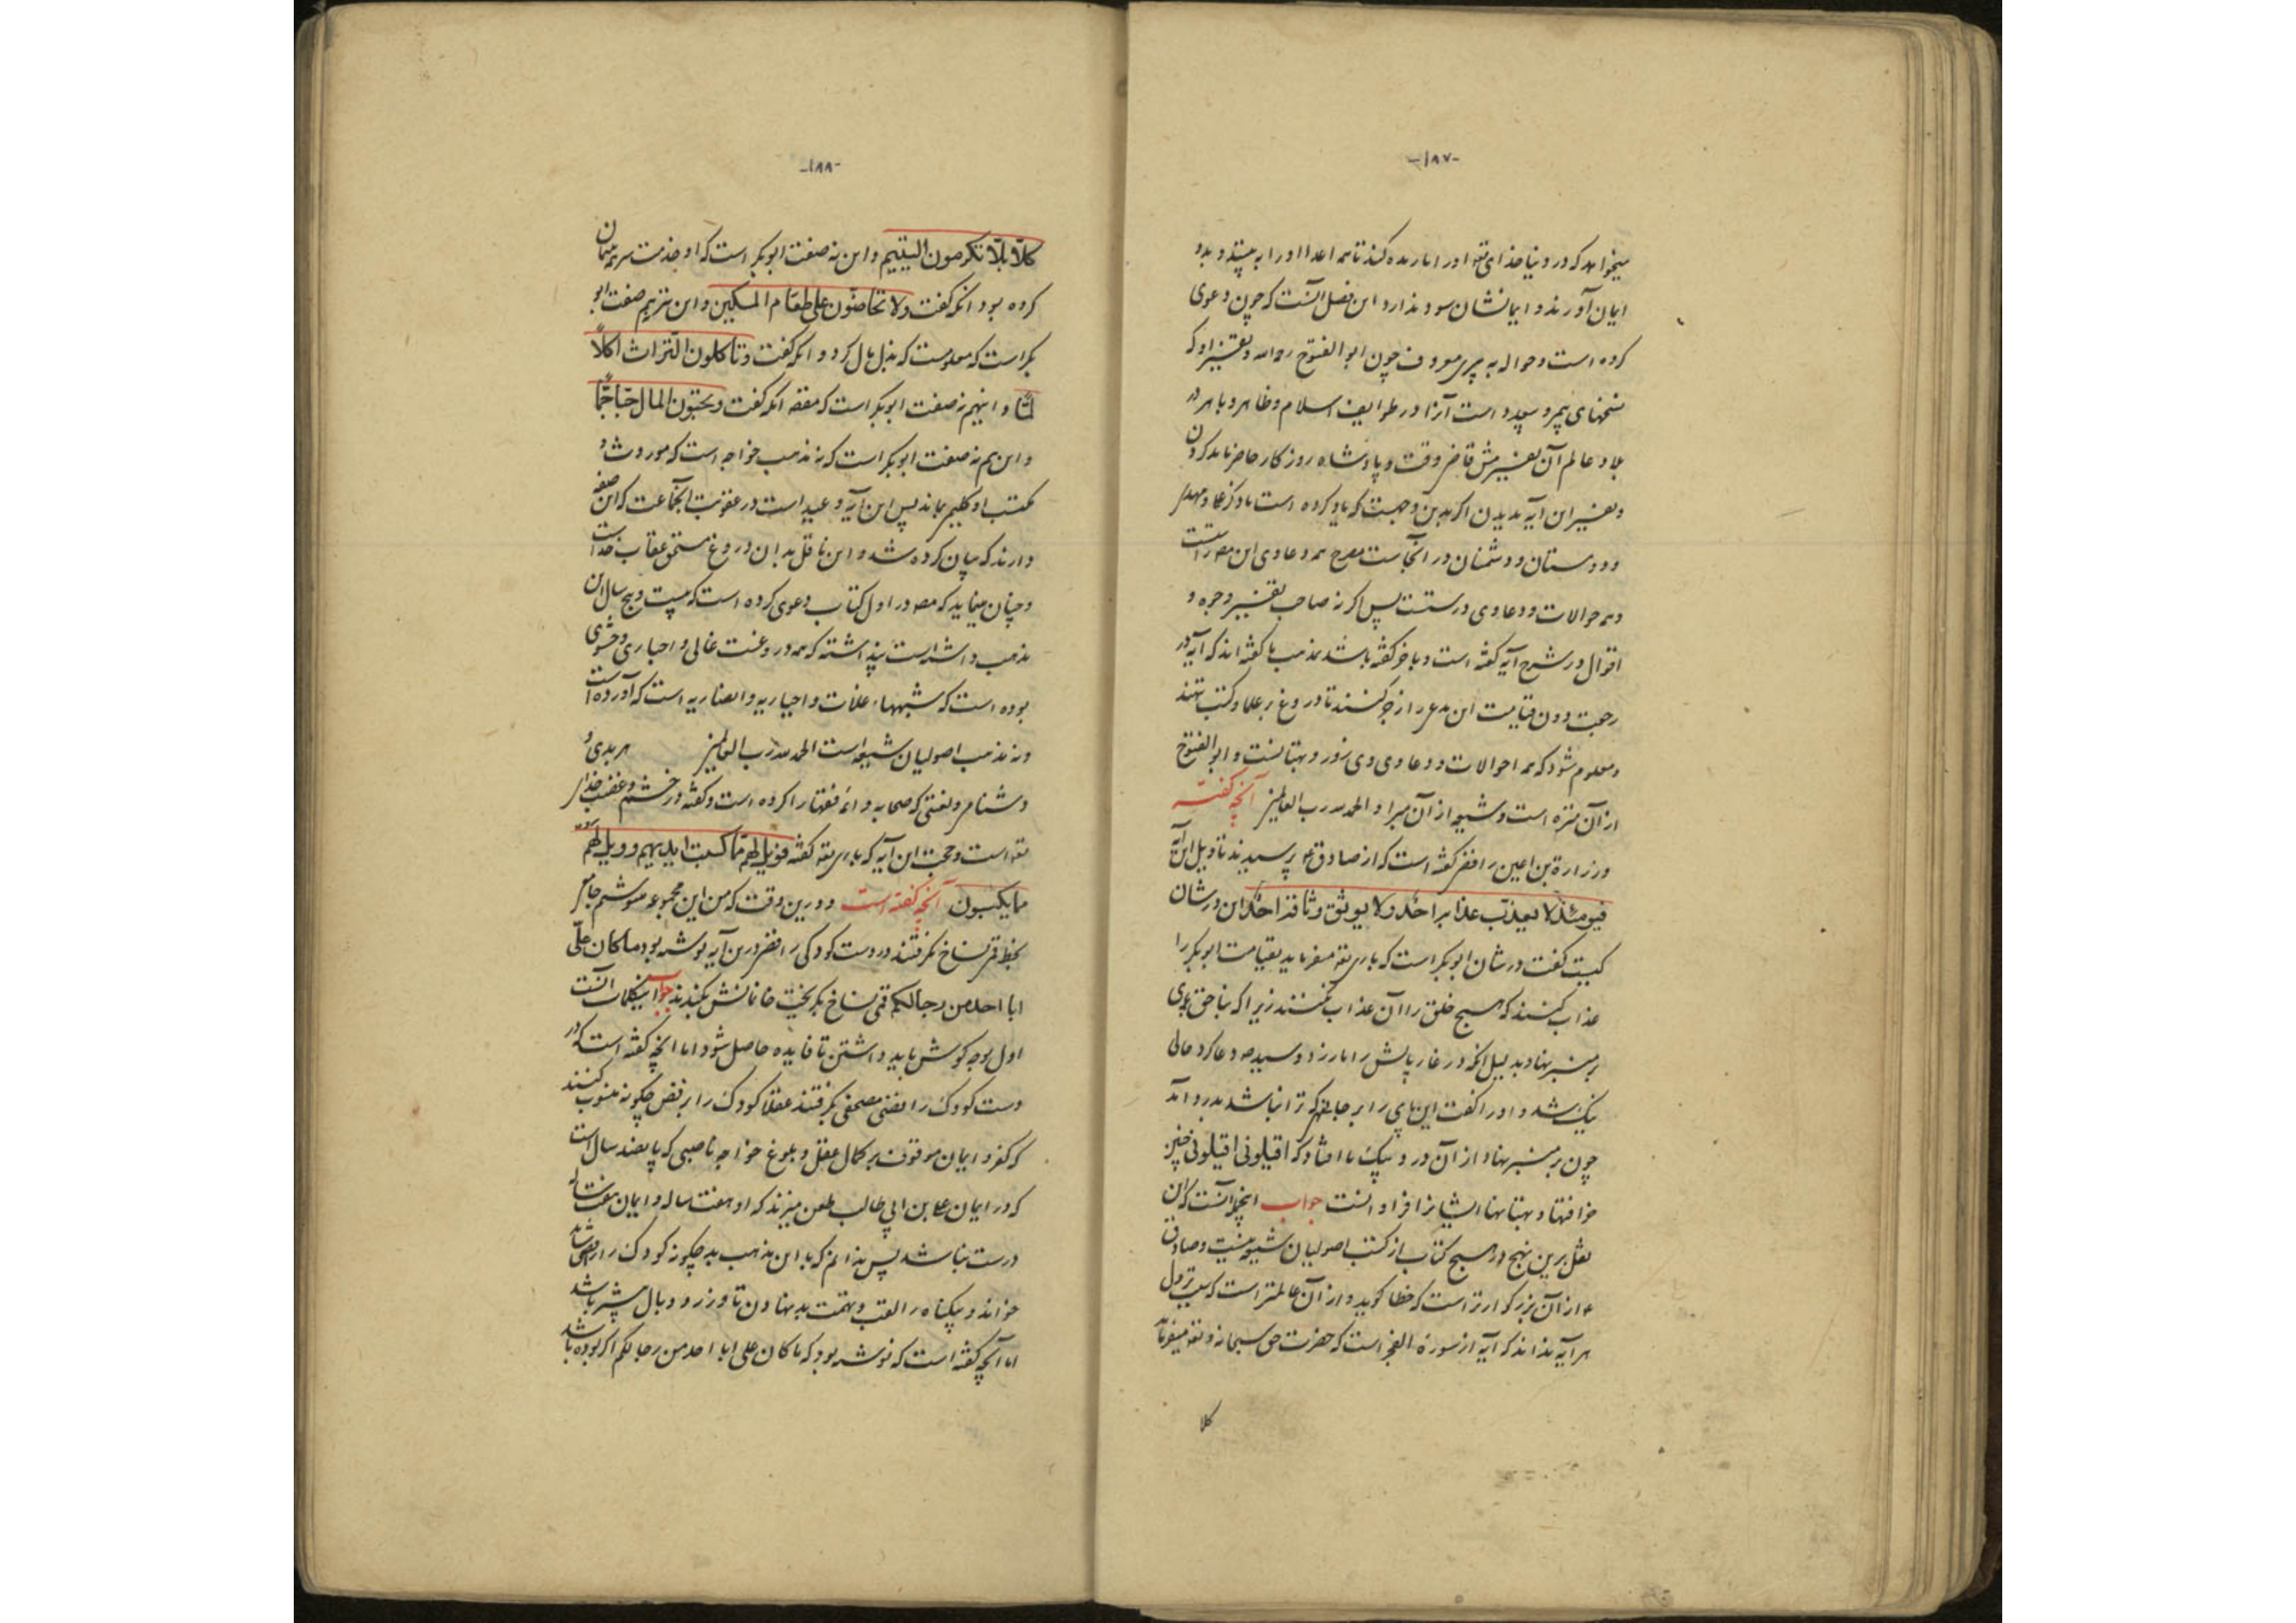 -۱۸۷-
میخواهد که در دنیا خدای تعه او را زنده کند تا همه اعدا او را به بینند و بدو
ایمان آورند و ایمانشان سود ندارد این فصل آنست که چون دعوی
کرده است و حواله به پیری معروف چون ابو الفتوح رحمه الله و تفسیر او که
نسختهای بیمر و بیعدد است آنرا در طوایف اسلام و ظاهر و باهر در
بلاد عالم آن تفسیر پیش قاضی وقت و پادشاه روزگار حاضر باید کردن
و تفسیر این آیه بدیدن اگر بدین وجهست که یاد کرده است
و دوستان و دشمنان در آنجاست همه دعاوی این مص راست
و همه حوالات و دعاوی درستست پس اگر نه صاحب تفسیر وجوه و
اقوال در شرح آیه گفته است و باخر گفته باشد بمذهب ما گفته اند که آیه در
رجعت و دن قیامت این مدعی را زجر کنند تا دروغ بر علما و کتب ننهند
و معلوم شود که همه احوالات و دعاوی وی زور و بهتانست و ابو الفتوح
از آن منزه است و شیعه از آن مبرا و الحمد لله رب العالمین آنچه گفته
وزرارة بن اعین رافضی گفته است که از صادق ع پرسیدند تاویل این آیه
فیومئذ لا یعذب عذابه احد ولا یوثق وثاقه احد این در شان
کیست گفت در شان ابوبکر است که باری تعه میفرماید بقیامت ابوبکر را
عذاب کنند که هیچ خلق را آن عذاب نکنند زیرا که بناحق پای
بر منبر نهاد بدلیل آنکه در غار پایش را مار زد و سید ص دعا کرد حالی
نیک شد و او را گفت این پای را بر جایی که ترا نباشد بدرد آید
چون بر منبر نهاد از آن درد بیک با افتاد که اقیلونی اقیلونی چنین
خرافتها و بهتانها ایشانرا فراوانست جواب اینچه آنست که این
نقل برین نهج در هیچ کتاب از کتب اصولیان شیعه نیست و صادق
ع از آن بزرگوارتر است که خطا گوید و از آن عالمتر است که سبب نزول
هر آیه نداند که آیه از سورة الفجر است که حضرت حق سبحانه و تعه میفرماید
کلا
-۱۸۸-
کلّا بل لا تکرمون الیتیم و این نه صفت ابوبکر است که او خدمت سر یتیمان
کرده بود آنکه گفت ولا تحاضّون علی طعام المسکین و این نیز هم صفت ابو
بکر است که معلومست که بذل مال کرد و آنکه گفت وتاکلون التراث اکلاً
لمّا و اینهم نه صفت ابوبکر است که مفقه آنکه گفت وتحبّون المال حبّا جمّا
و این هم نه صفت ابوبکر است که نه مذهب خواجه است که موروث و
مکتسب او کلیم بماند پس این آیه وعید است در عقوبت آنجماعت که این صفه
دارند که بیان کرده شد و این ناقل بدان دروغ مستحق عقاب خداست
و چنان مینماید که مص در اول کتاب دعوی کرده است که بیست و پنج سال این
مذهب داشته است پنداشته که همه دروغست غالی و اخباری و حشوی
بوده است که شبهها غلات و اخباریه و انصاریه است که آورده است
و نه مذهب اصولیان شیعه است الحمد لله رب العالمین هر بدی و
دشنام و لعنتی که صحابه و ائمه فقها را کرده است و گفته در خشم و غضب خدای
تعه است و حجت این آیه که باری تعه گفته فویل لهم مما کسبت ایدیهم وویل لهم
مما یکسبون آنچه گفته است و درین وقت که من این مجموعه مینوشتم جامع
بخط قمی نساخ بگرفتند در دست کودکی رافضی درین آیه نوشته بود ما کان علی
ابا احد من رجالکم قمی نساخ بگریخت خانمانش بکندند جواب این کلمات آنست
اول بوجه گوش باید داشتن تا فایده حاصل شود اما آنچه گفته است که در
دست کودک رافضی مصحفی بگرفتند عقلاً کودک را برفض چگونه منسوب کنند
که کفر و ایمان موقوف بر کمال عقل و بلوغ خواجه ناصبی که پانصد سال است
که در ایمان علی بن ابی طالب طعن میزند که او هفت ساله و ایمان هفت ساله
درست نباشد پس ندانم که با این مذهب بد چگونه کودک را رافضی شاید
خواند و بیگناه را لقب و تهمت بد نهادن تا وزر و وبال بیشتر باشد
اما آنچه گفته است که نوشته بود که ما کان علی ابا احد من رجالکم اگر بوده باشد